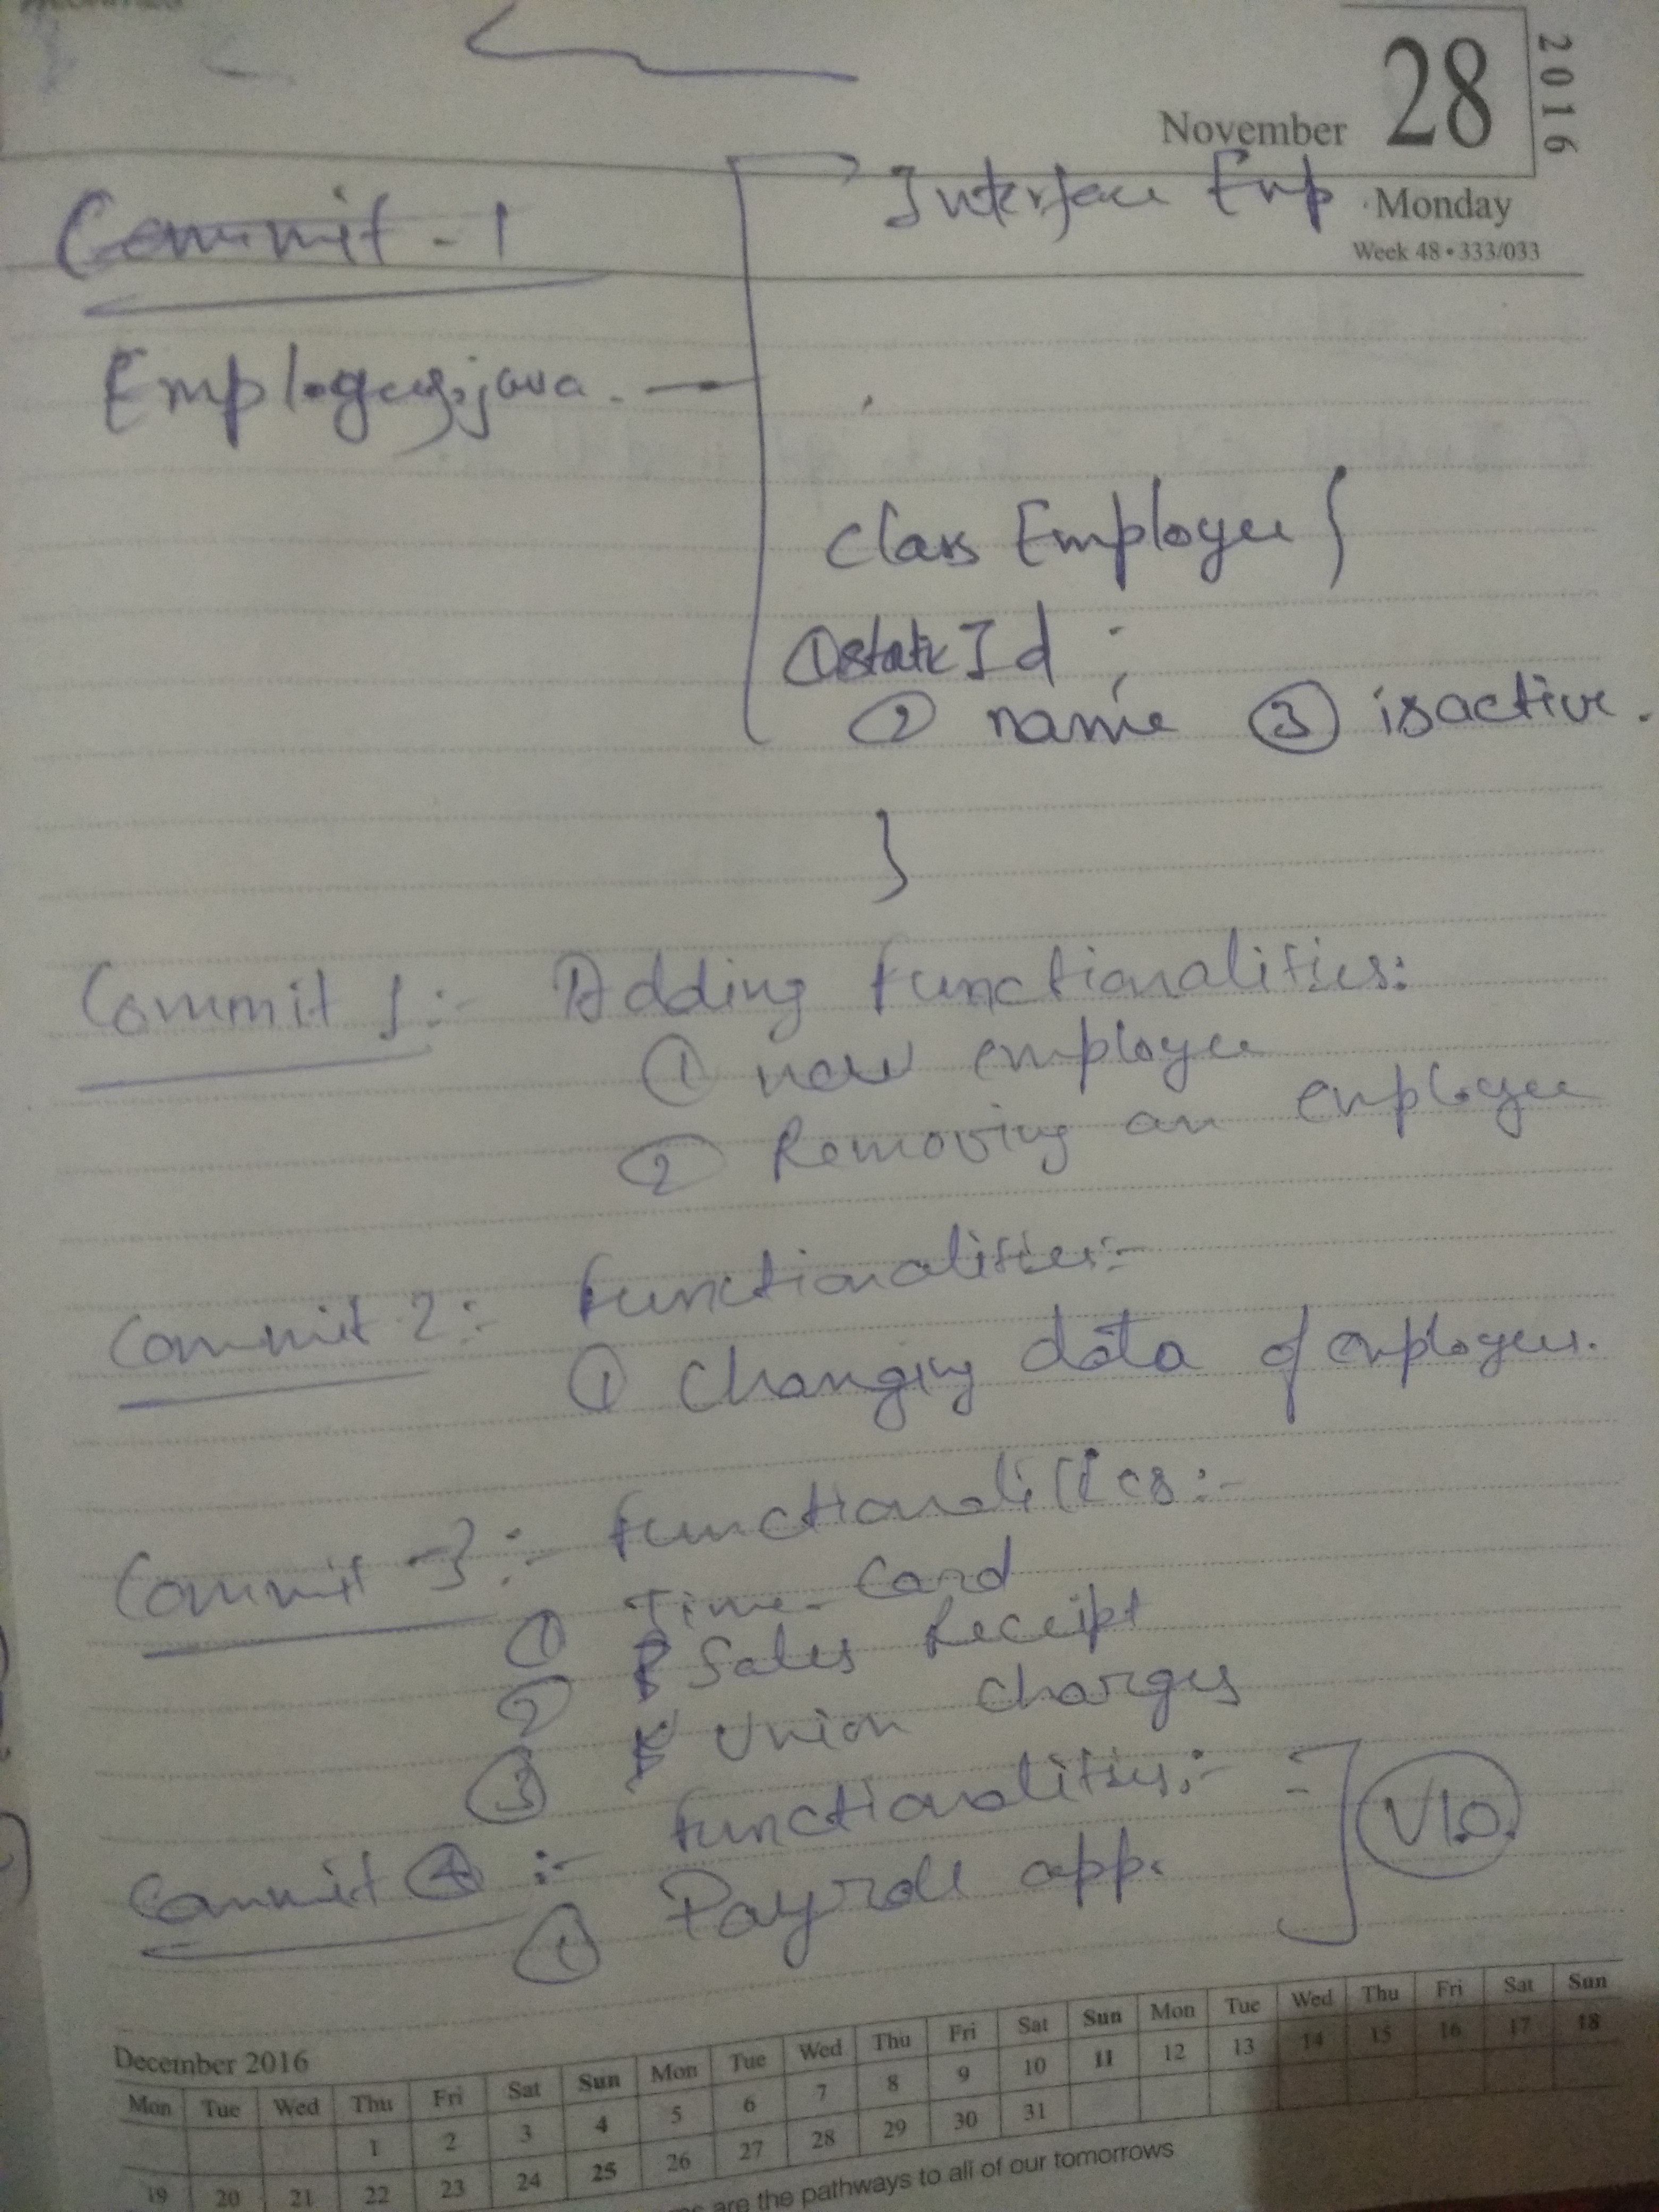 November 28 2016
Monday
Week 48 • 333/033
Commit - 1
Interface Emp
Employees.java
class Employee {
① static Id ;
② name ③ isactive.
}
Commit 1 :- Adding functionalities:
① new employee
② Removing an employee
Commit 2 :- functionalities:-
① Changing data of employees.
Commit - 3 :- functionalities:-
① Time-Card
② Sales Receipt
③ Union Charges
Commit ④ :- functionalities:-
① Payroll app.
V1.0.
December 2016
Mon Tue Wed Thu Fri Sat Sun Mon Tue Wed Thu Fri Sat Sun Mon Tue Wed Thu Fri Sat Sun
1 2 3 4 5 6 7 8 9 10 11 12 13 14 15 16 17 18
19 20 21 22 23 24 25 26 27 28 29 30 31
are the pathways to all of our tomorrows